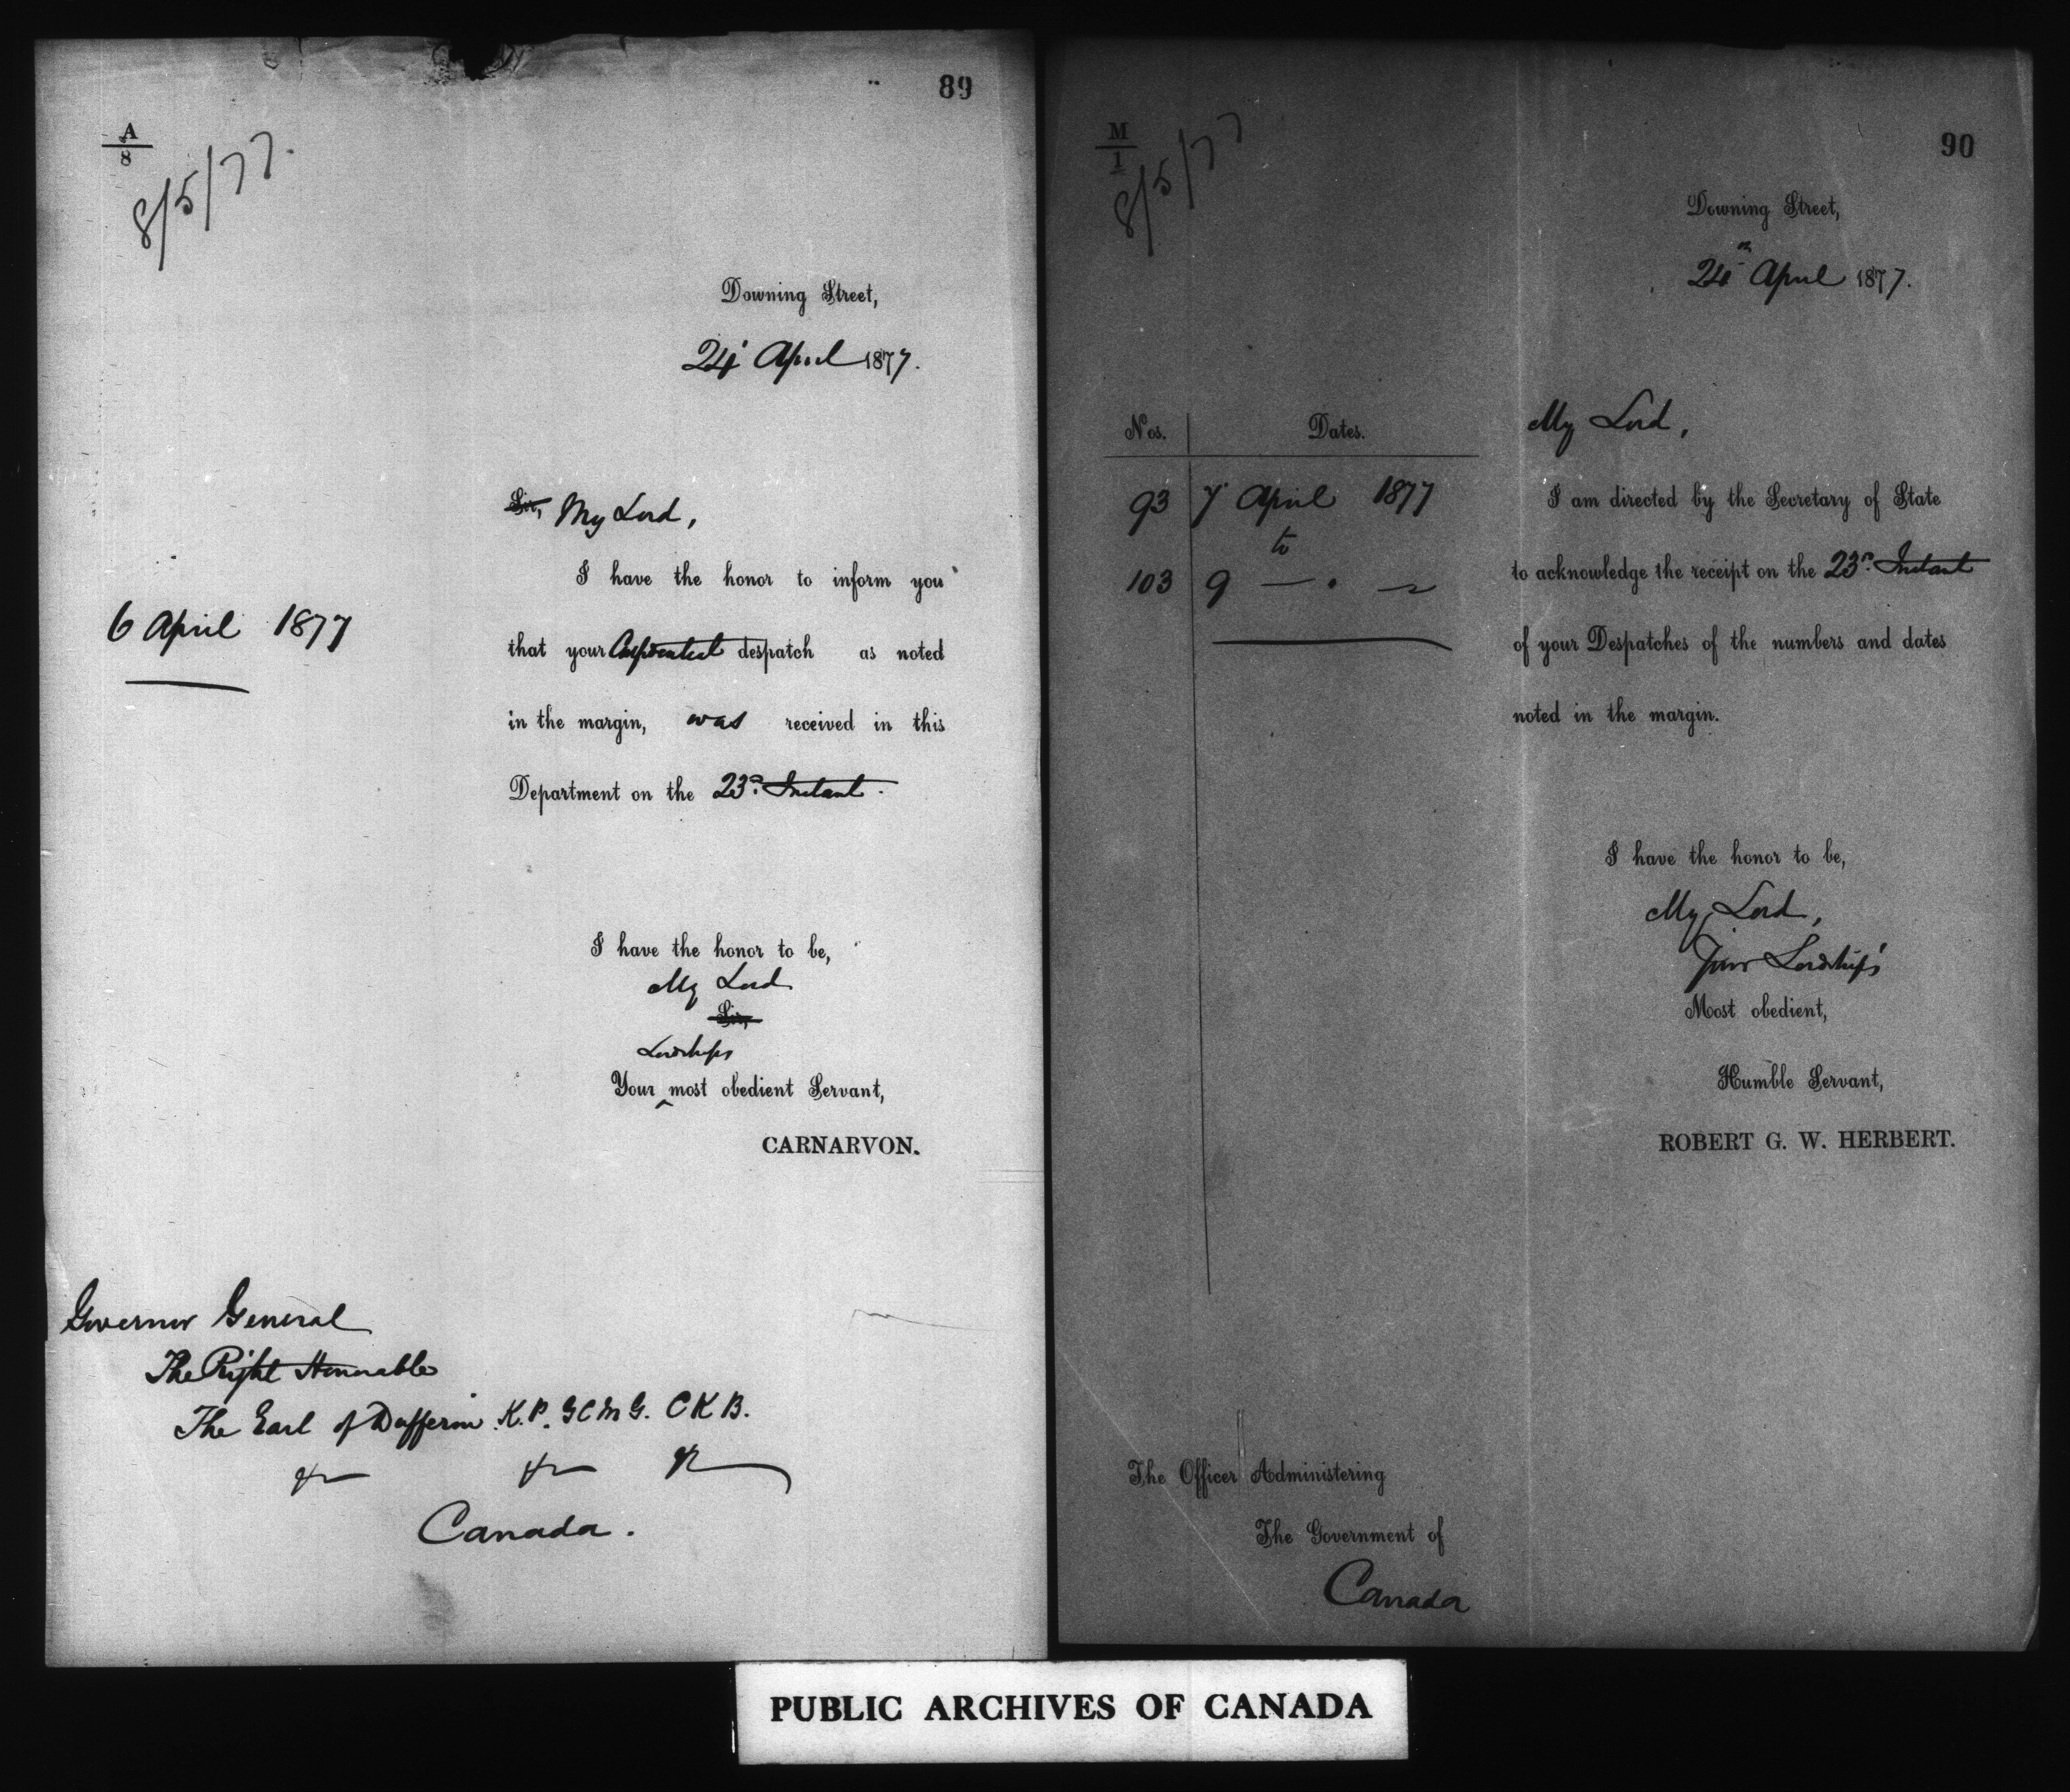 89
A
8
8/5/77.
Downing Street,
24 April 1877.
Sir, My Lord,
I have the honor to inform you
6 April 1877
that your Confidential despatch as noted
in the margin, was received in this
Department on the 23rd Instant.
I have the honor to be,
My Lord
Sir,
Lordships
Your most obedient Servant,
CARNARVON.
Governor General
The Right Honourable
The Earl of Dufferin K.P. G C M G. C K B.
&c &c &c
Canada.
90
M
1
8/5/77
Downing Street,
24th April 1877.
My Lord,
Nos. Dates.
93 7 April 1877
to
103 9 — . —
I am directed by the Secretary of State
to acknowledge the receipt on the 23rd Instant
of your Despatches of the numbers and dates
noted in the margin.
I have the honor to be,
My Lord,
Your Lordship's
Most obedient,
Humble Servant,
ROBERT G. W. HERBERT.
The Officer Administering
The Government of
Canada
PUBLIC ARCHIVES OF CANADA